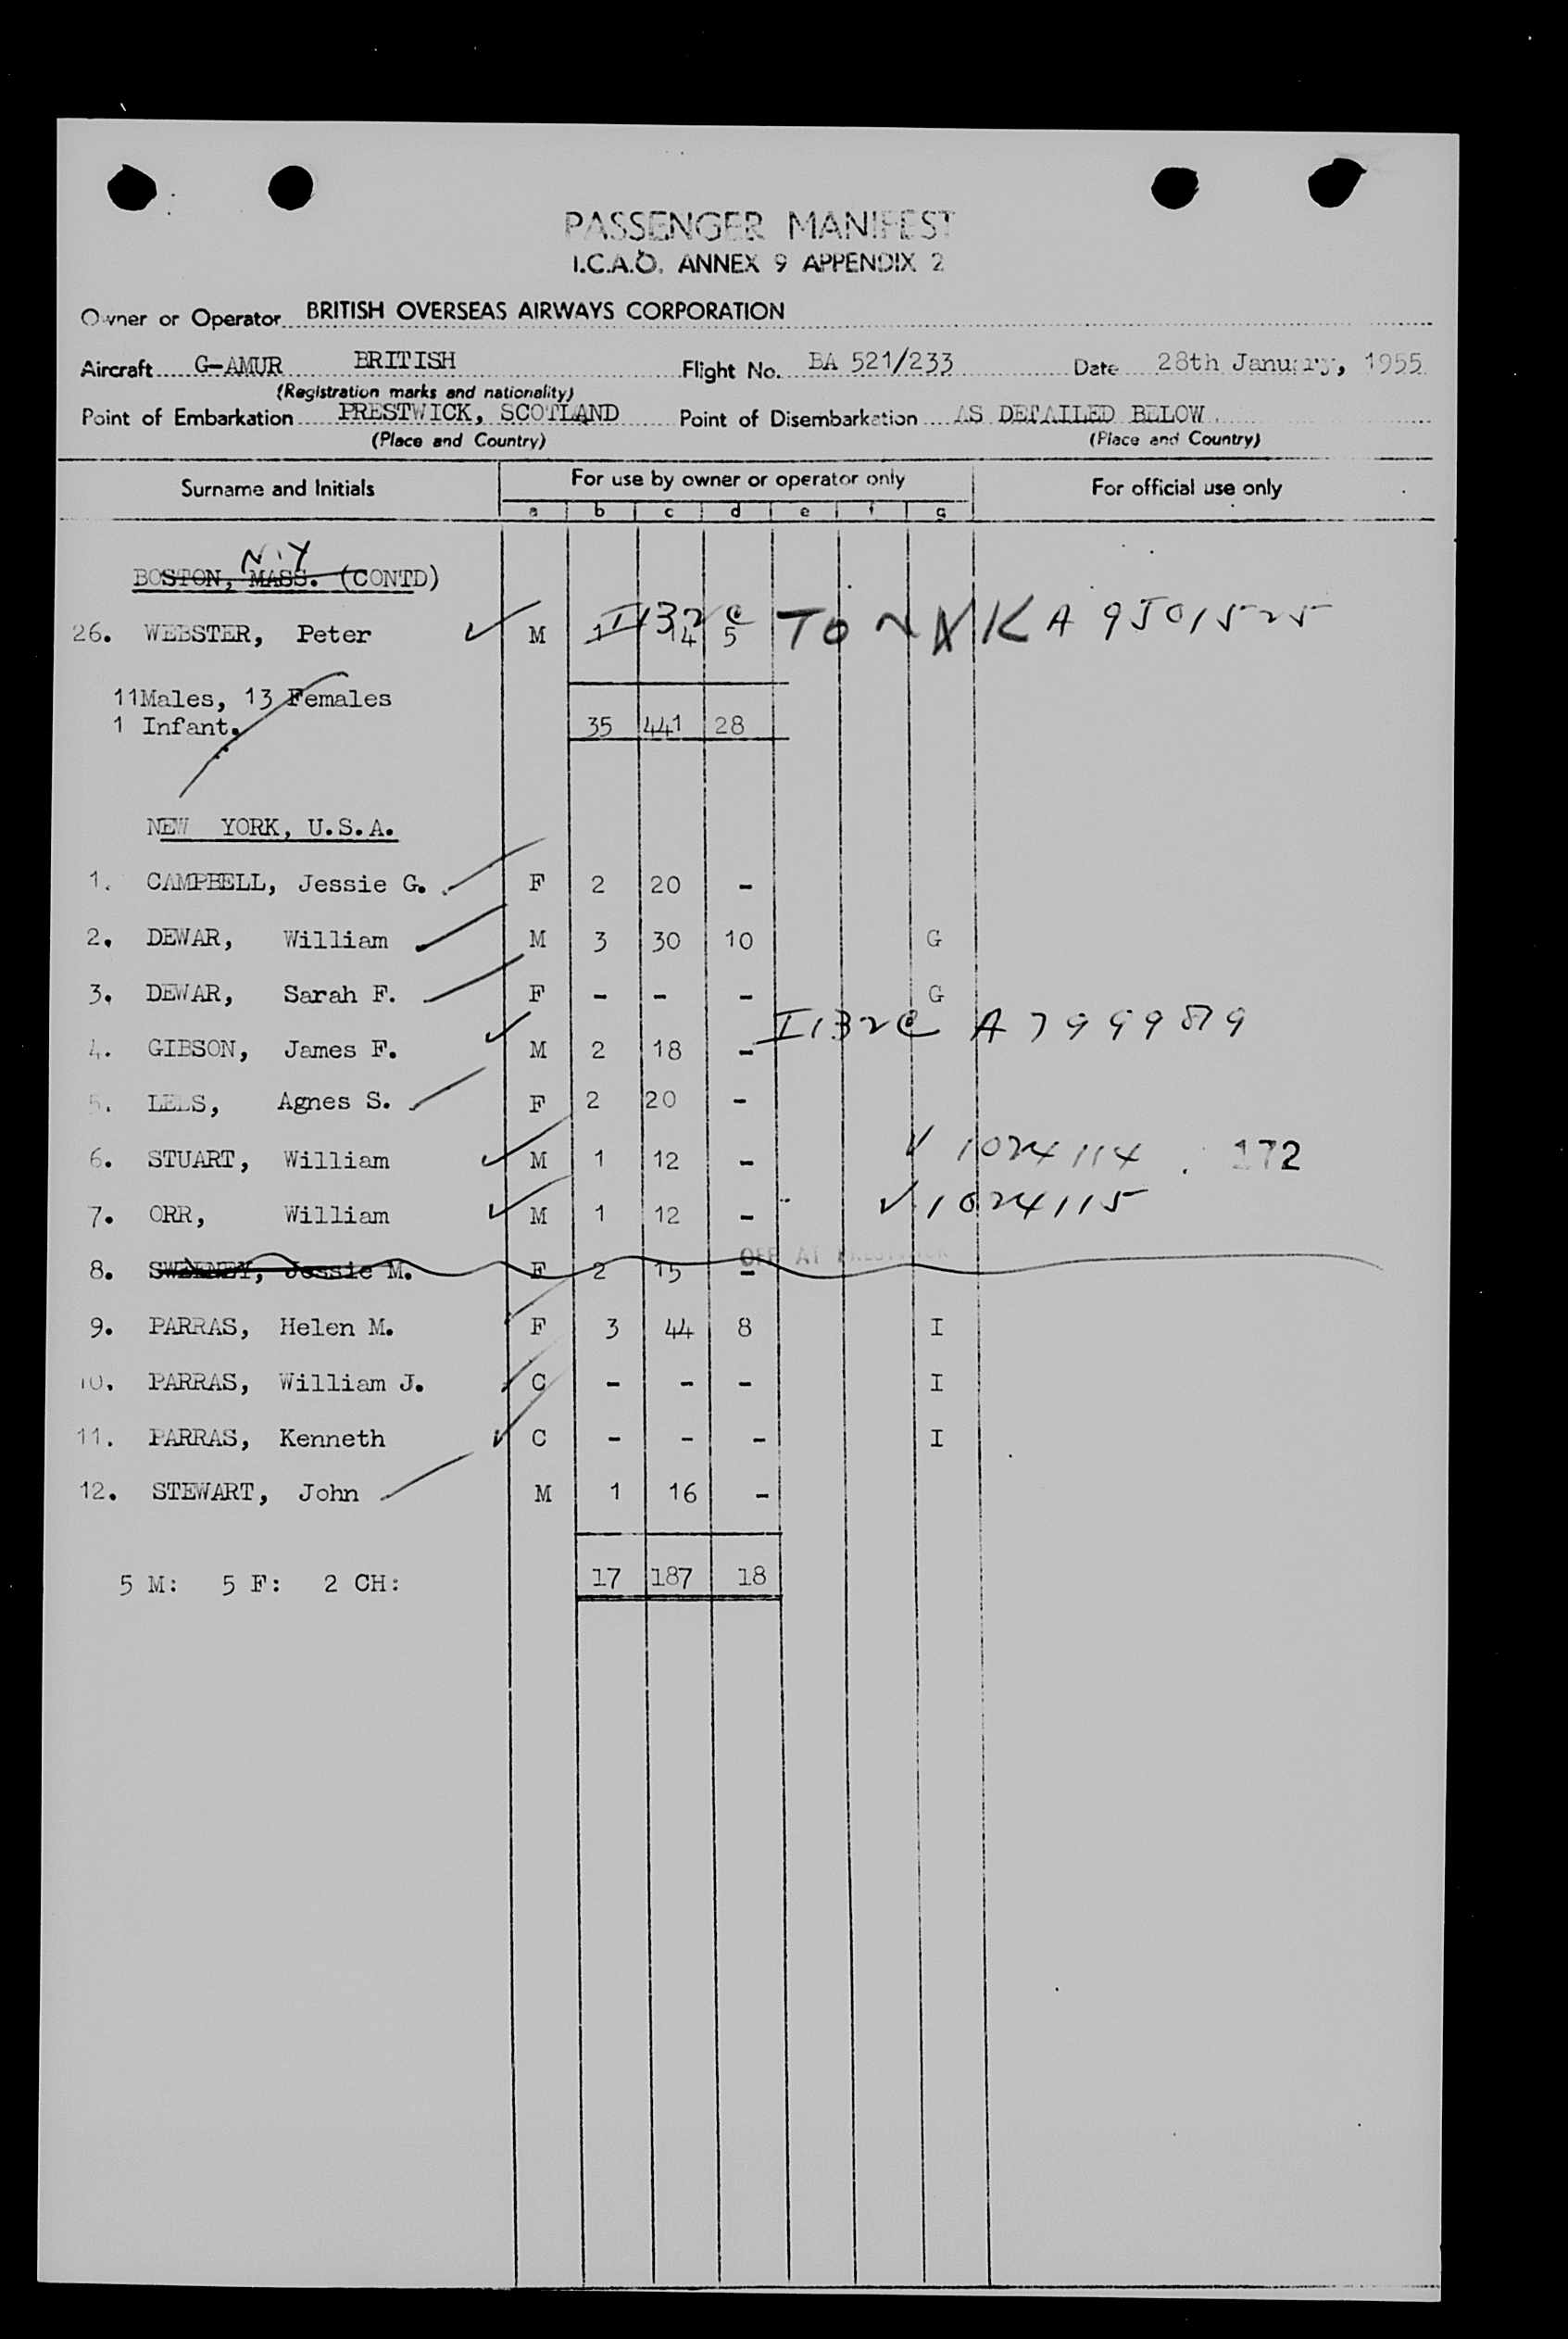 PASSENGER MANIFEST
I.C.A.O. ANNEX 9 APPENDIX 2
Owner or Operator BRITISH OVERSEAS AIRWAYS CORPORATION
Aircraft G-AMUR BRITISH Flight No. BA 521/233 Date 28th January, 1955
(Registration marks and nationality)
Point of Embarkation PRESTWICK, SCOTLAND Point of Disembarkation AS DETAILED BELOW.
(Place and Country) (Place and Country)
Surname and Initials For use by owner or operator only For official use only
a b c d e f g
N.Y
BOSTON, MASS. (CONTD)
26. WEBSTER, Peter M 1 14 5 I132c TO A 9501525
11Males, 13 Females
1 Infant. 35 441 28
NEW YORK, U.S.A.
1. CAMPBELL, Jessie G. F 2 20 -
2. DEWAR, William M 3 30 10 G
3. DEWAR, Sarah F. F - - - G
I132c A7999819
4. GIBSON, James F. M 2 18 -
5. LEES, Agnes S. F 2 20 -
6. STUART, William M 1 12 - ✓ 1024114 . 172
7. ORR, William M 1 12 - ✓ 1024115
OFF AT PRESTWICK
8. SWEENEY, Jessie M. F 2 15 -
9. PARRAS, Helen M. F 3 44 8 I
10. PARRAS, William J. C - - - I
11. PARRAS, Kenneth C - - - I
12. STEWART, John M 1 16 -
5 M: 5 F: 2 CH: 17 187 18